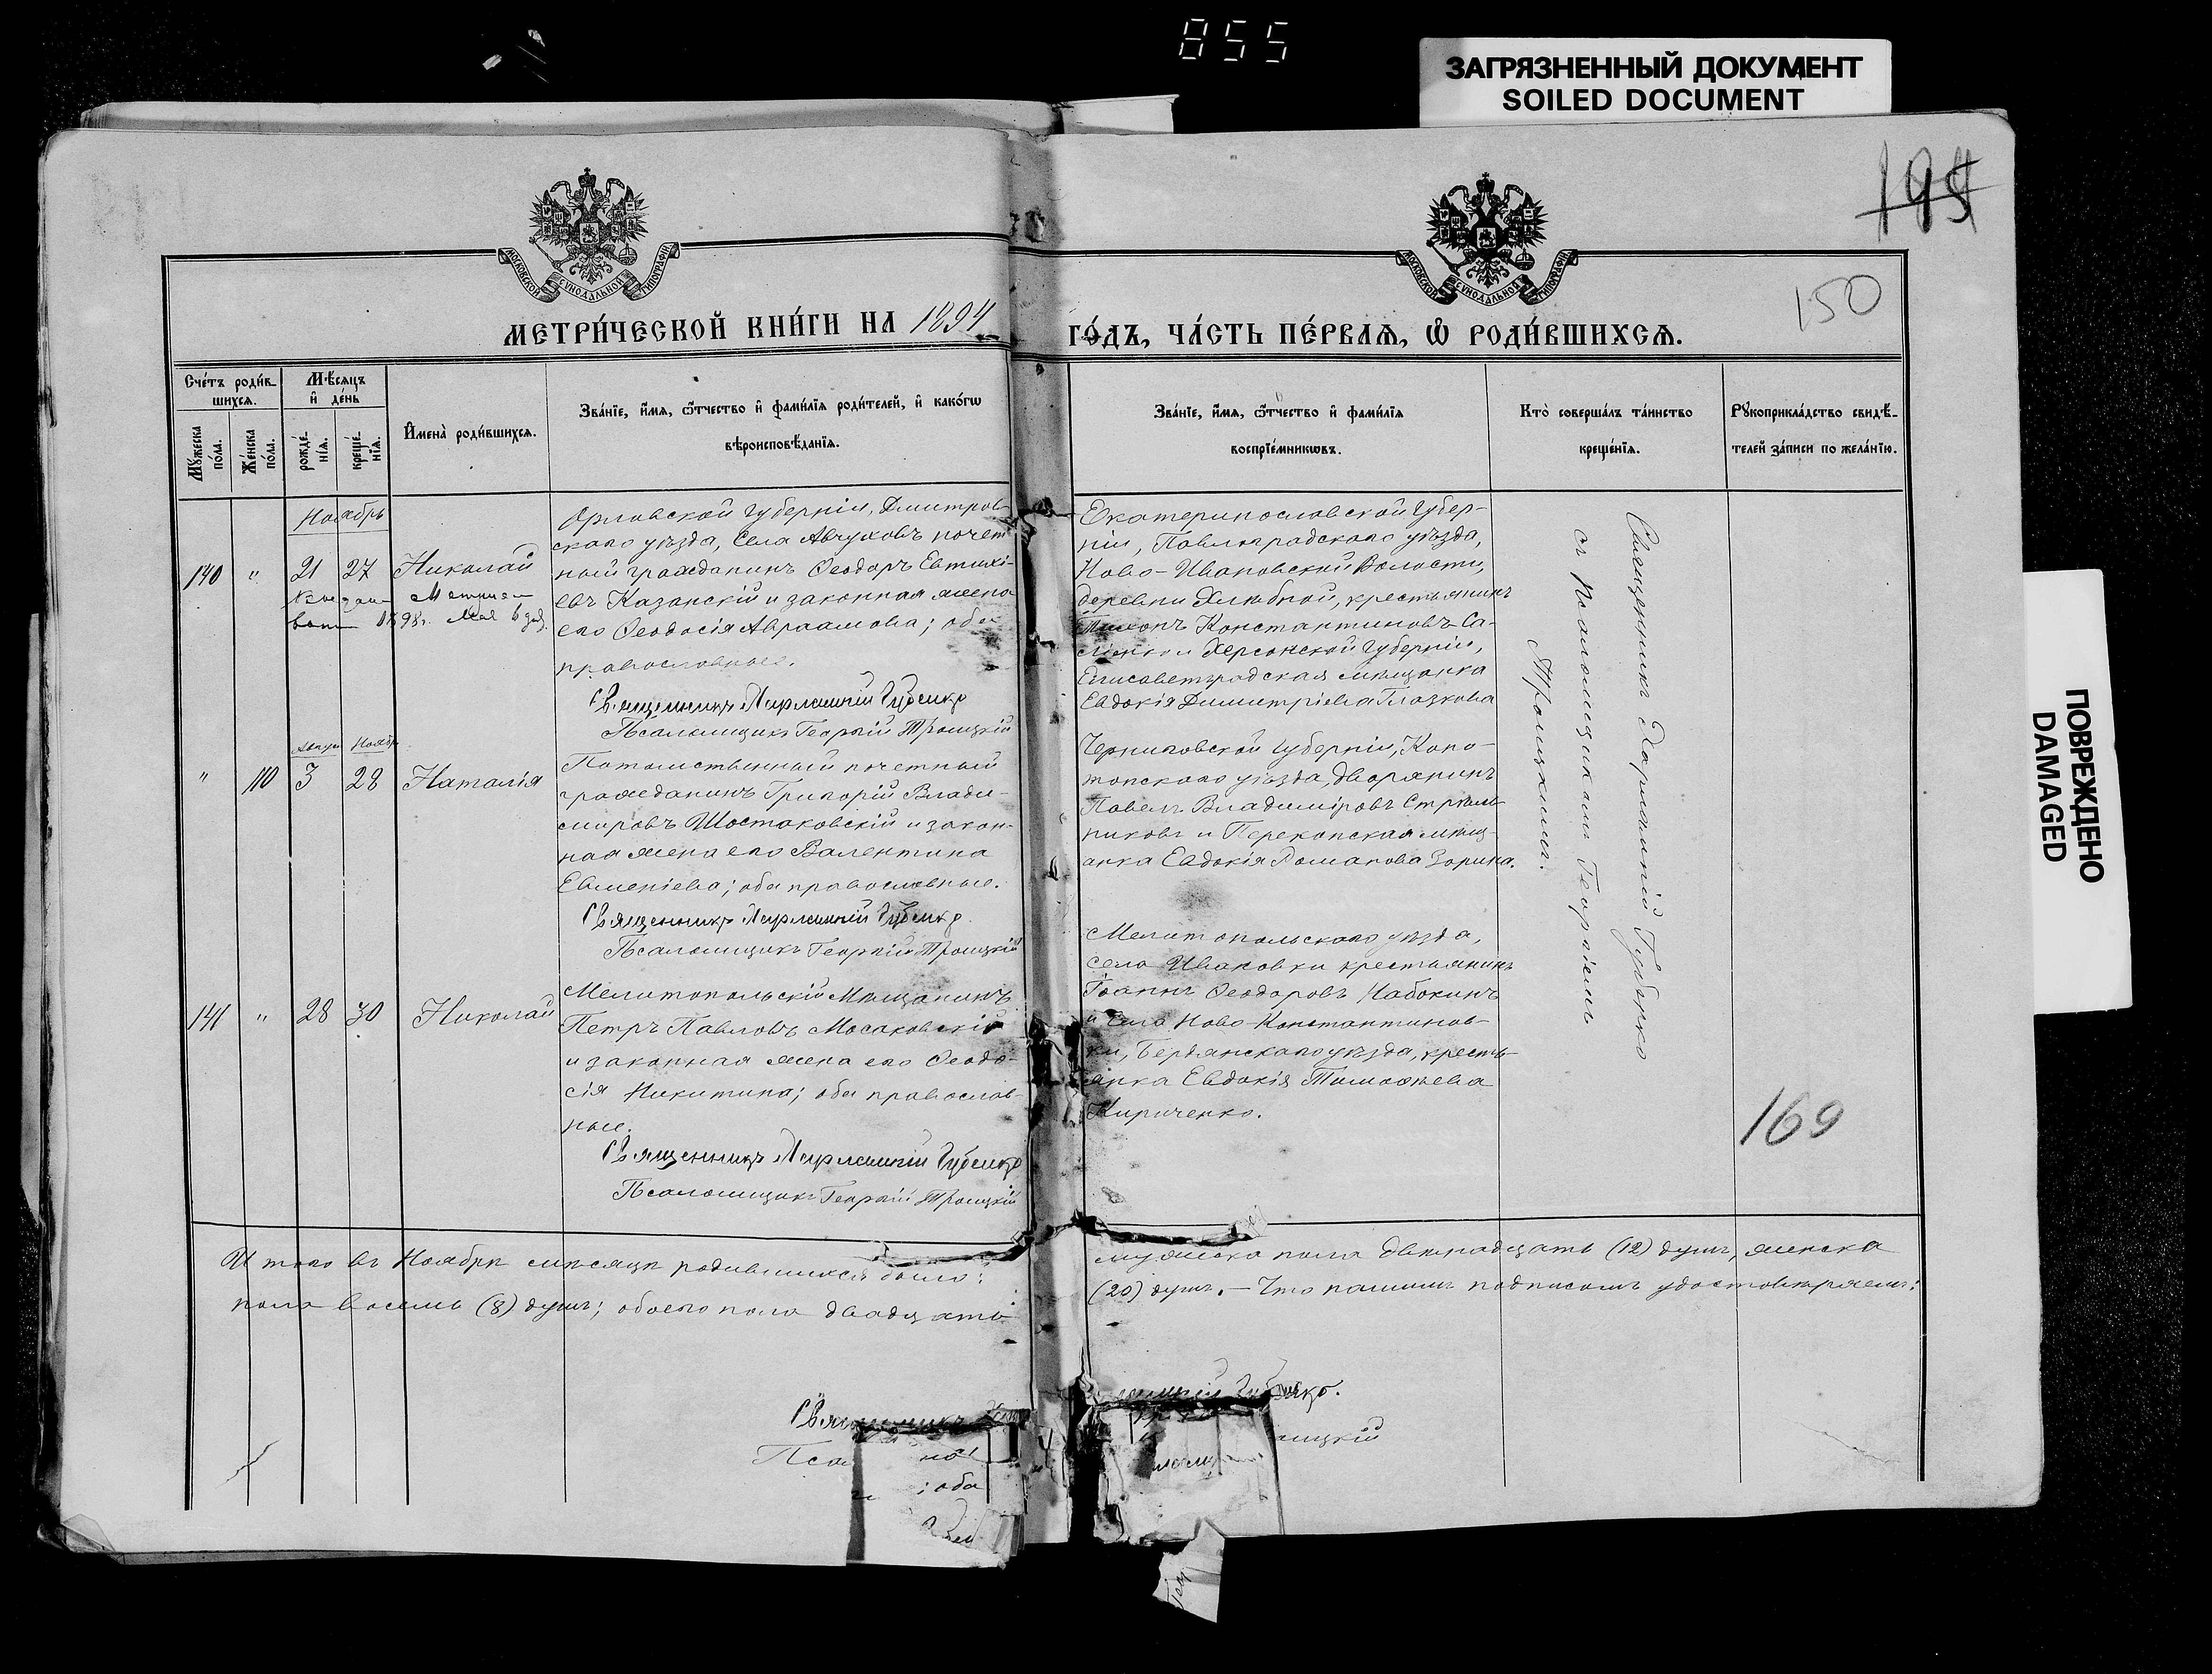 855
ЗАГРЯЗНЕННЫЙ ДОКУМЕНТ
SOILED DOCUMENT
195
150
МОСКОВСКОЙ СѴНОДАЛЬНОЙ ТИПОГРАФІИ
МОСКОВСКОЙ СѴНОДАЛЬНОЙ ТИПОГРАФІИ
МЕТРИ́ЧЕСКОЙ КНИ́ГИ НА 1894
ГО́ДЪ, ЧА́СТЬ ПЕ́РВАѦ, Ѡ҆ РОДИ́ВШИХСѦ.
Сче́тъ роди́в-
шихсѧ.
Мꙋ́жеска по́ла.
Же́нска по́ла.
Мѣ́сѧцъ
и҆ де́нь
рожде́-
нїѧ.
креще́-
нїѧ.
И҆мена̀ роди́вшихсѧ.
Зва́нїе, и҆́мѧ, ѻ҆́тчество и҆ фами́лїѧ роди́телей, и҆ како́гѡ
вѣроисповѣ́данїѧ.
Зва́нїе, и҆́мѧ, ѻ҆́тчество и҆ фами́лїѧ
воспрїе́мникѡвъ.
Кто̀ соверша́лъ та́инство
креще́нїѧ.
Рꙋкоприкла́дство свидѣ́-
телей за́писи по жела́нїю.
Ноябрь
140 " 21 27 Николай
1898. Мая 6
Орловской Губерніи, Дмитров-
скаго уѣзда, Села Авчуховъ почет-
ный гражданинъ Ѳеодоръ Евтихі-
евъ Казанскій и законная жена
его Ѳеодосія Авраамова; оба
православные.
Священникъ Харлампій Губенко
Псаломщикъ Георгій Троицкій
Екатеринославской Губер-
ніи, Павлоградскаго уѣзда,
Ново-Ивановской Волости,
деревни Хлѣбной, крестьянинъ
Тихонъ Константиновъ
Херсонской Губерніи,
Елисаветградская мѣщанка
Евдокія Димитріева Глазкова
Священникъ Харлампій Губенко
съ Псаломщикомъ Георгіемъ
Троицкимъ.
Август Ноябр
" 110 3 28 Наталія
Потомственный почетный
гражданинъ Григорій Влади-
міровъ Шостаковскій и закон-
ная жена его Валентина
Евменіева; оба православные.
Священникъ Харлампій Губенко.
Псаломщикъ Георгій Троицкій
Черниговской Губерніи, Коно-
топскаго уѣзда, дворянинъ
Павелъ Владиміровъ Стрѣль-
никовъ и Перекопская мѣщ-
анка Евдокія Романова Зорина.
141 " 28 30 Николай
Мелитопольскій Мѣщанинъ
Петръ Павловъ Мосаковскій
и законная жена его Ѳеодо-
сія Никитина; оба православ-
ные.
Священникъ Харлампій Губенко
Псаломщикъ Георгій Троицкій
Мелитопольскаго уѣзда,
села Ивановки крестьянинъ
Іоаннъ Ѳеодоровъ Набокинъ
и Села Ново-Константинов-
ки, Бердянскаго уѣзда, кресть-
янка Евдокія Тимоѳеева
Кириченко.
169
Итого въ Ноябрѣ мѣсяцѣ родившихся было:
мужеска пола двѣнадцать (12) душъ, женска
пола восемь (8) душъ; обоего пола двадцать
(20) душъ. — Что нашимъ подписомъ удостовѣряемъ:
Священникъ
Губенко.
Пса
оицкій
; оба
ПОВРЕЖДЕНО
DAMAGED